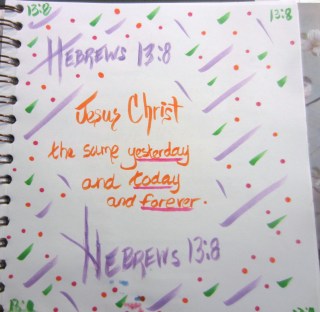 13:8 13:8
HEBREWS 13:8
Jesus Christ
the same yesterday
and today
and forever.
HEBREWS 13:8
13:8